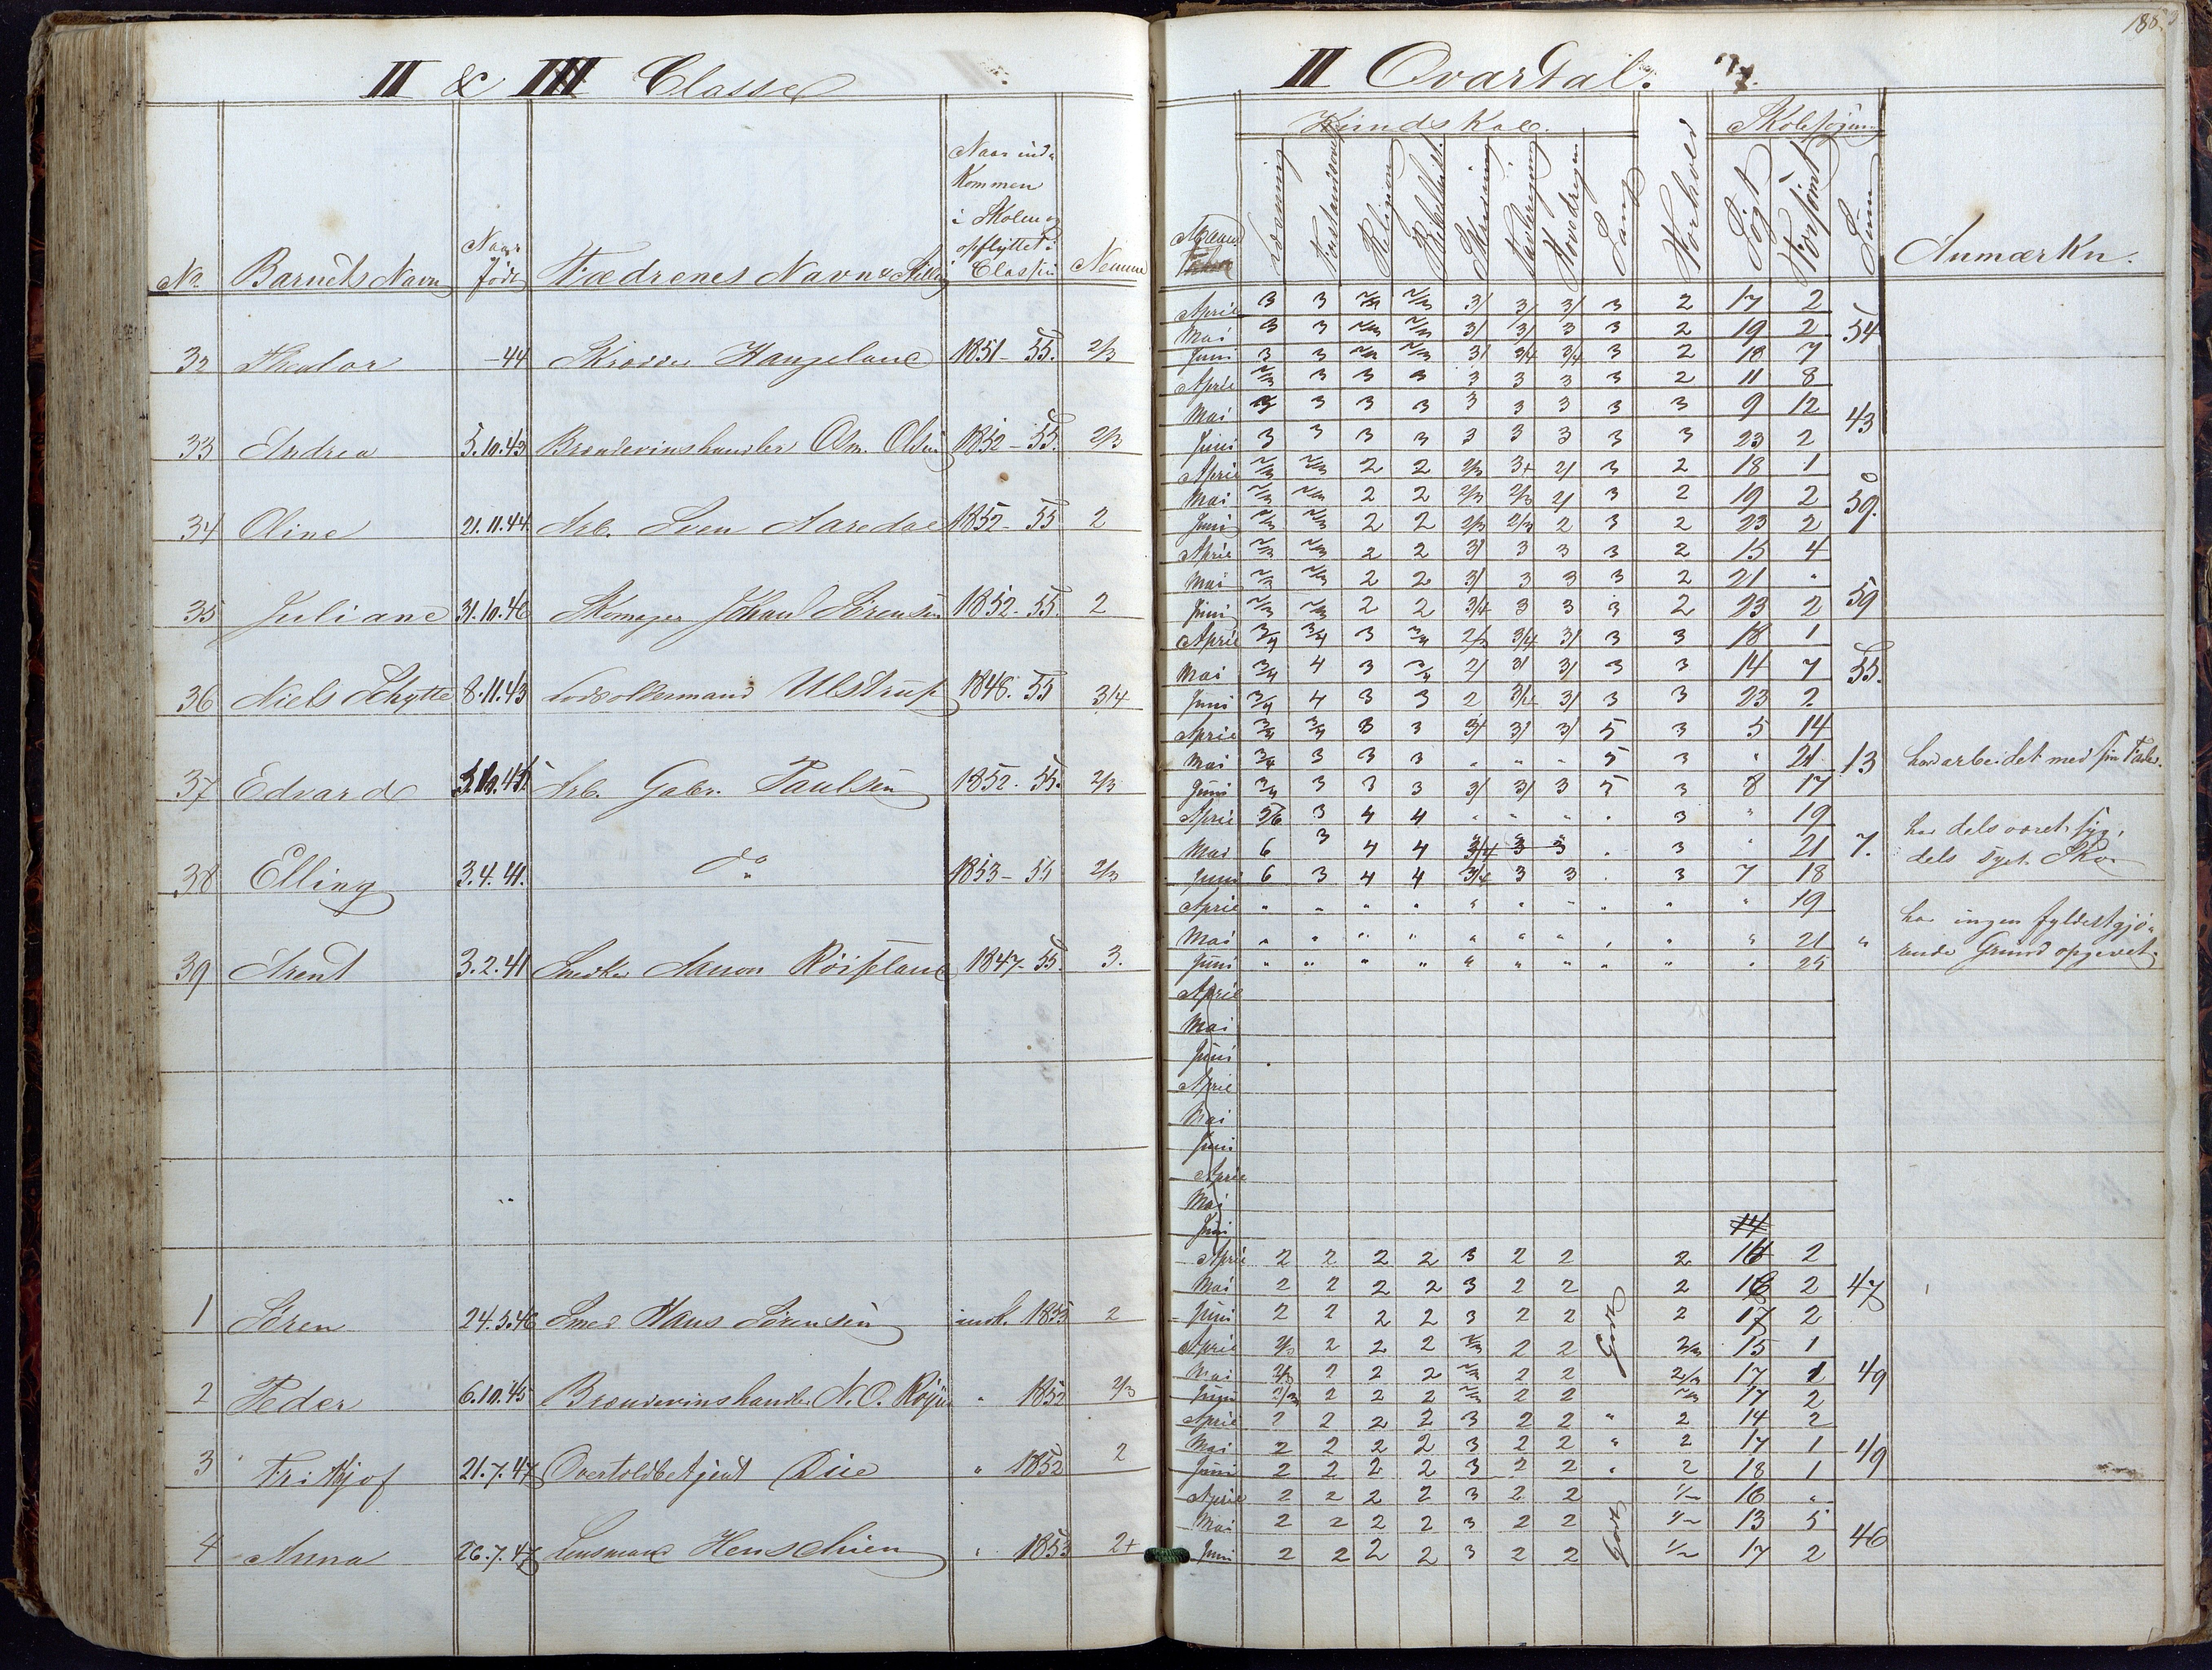 II & III Classe
No Barnets Navn Naar født Fædrenes Navn & Stilling Naar ind-kommen i Skolen og opflyttet i Classen Nemme
32 Theodor -44 Hangeland 1851-55. 2/3
33 Andrea 5.10.43 Brændevinshandler Osm. Olsen 1852-55. 2/3
34 Oline 21.11.44 Arb. Sven Aaredal 1852-55 2
35 Juliane 31.10.46 Skomager Johan Sörensen 1852-55. 2
36 Niels Schytte 8.11.43 Lodsoldermand Ulstrup 1846-55 3/4
37 Edvard Arb. Gabr. Paulsen 1852-55. 2/3
38 Elling 3.4.41. do 1853-55 2/3
39 Arent 3.2.41 Snedker Aanon Röiseland 1847-55. 3.
1 Sören 24.5.46 Smed Hans Sörensen indk. 1853 2
2 Peder 6.10.45 Brændevinshandler N. O. " 1852 2/3
3 Frithjof 21.7.47 Overtoldbetjent Due " 1852 2
4 Anna 26.7.47 Lensmand Henschien " 1853 2+
185
II Qvartal.
Kundskab. Skolesøgning
Maaned Læsning Religion Skrivning Tavleregning Hovedregn Sang Forhold Søgt Forsømt Sum Anmærkn.
April 3 3 2/3 2/3 3/ 3/ 3/ 3 2 17 2
Mai 3 3 2/3 2/3 3/ 3/ 3 3 2 19 2 54
Juni 3 3 2/3 2/3 3/ 3/4 3/4 3 2 18 7
April 2/3 3 3 3 3 3 3 3 2 11 8
Mai 3 3 3 3 3 3 3 3 3 9 12 43
Juni 3 3 3 3 3 3 3 3 3 23 2
April 2/3 2/3 2 2 2/3 3+ 2/ 3 2 18 1
Mai 2/3 2/3 2 2 2/3 2/3 2/ 3 2 19 2 59.
Juni 2/3 2/3 2 2 2/3 2/3 2 3 2 23 2
April 2/3 2/3 2 2 3/ 3 3 3 2 15 4
Mai 2/3 2/3 2 2 3/ 3 3 3 2 21 "
Juni 2/3 2/3 2 2 3/4 3 3 3 2 23 2 59
April 3/4 3/4 3 3/4 2/3 3/4 3/ 3 3 18 1
Mai 3/4 4 3 3/4 2/ 3/ 3/ 3 3 14 7 55.
Juni 3/4 4 3 3 2 3/4 3/ 3 3 23 2
April 3/4 3/4 3 3 3/ 3/ 3/ 5 3 5 14
Mai 3/4 3 3 3 " " " 5 3 " 21 13 har arbeidet med sin Fader.
Juni 3/4 3 3 3 3/ 3/ 3 5 3 8 17
April 5/6 3 4 4 " " " " 3 " 19
har dels været syg,
Mai 6 3 4 4 3/4 3 3 " 3 " 21 7.
dels Skoe
Juni 6 3 4 4 3/4 3 3 " 3 7 18
April " " " " " " " " " " 19
har ingen fyldestgjö-
Mai " " " " " " " " " " 21 "
rende Grund opgivet.
Juni " " " " " " " " " " 25
April
Mai
Juni
April
Mai
Juni
April
Mai
Juni 14
April 2 2 2 2 3 2 2 2 16 2
Mai 2 2 2 2 3 2 2 2 16 2 47
Juni 2 2 2 2 3 2 2 Godt 2 17 2
April 2/3 2 2 2 2/3 2 2 2/3 15 1
Mai 2/3 2 2 2 2/3 2 2 2/3 17 1 49
Juni 2/3 2 2 2 2/3 2 2 2/3 17 2
April 2 2 2 2 3 2 2 " 2 14 2
Mai 2 2 2 2 3 2 2 " 2 17 1 49
Juni 2 2 2 2 3 2 2 " 2 18 1
April 2 2 2 2 3 2 2 1/2 16 "
Mai 2 2 2 2 3 2 2 Godt 1/2 13 5
Juni 2 2 2 2 3 2 2 1/2 17 2 46